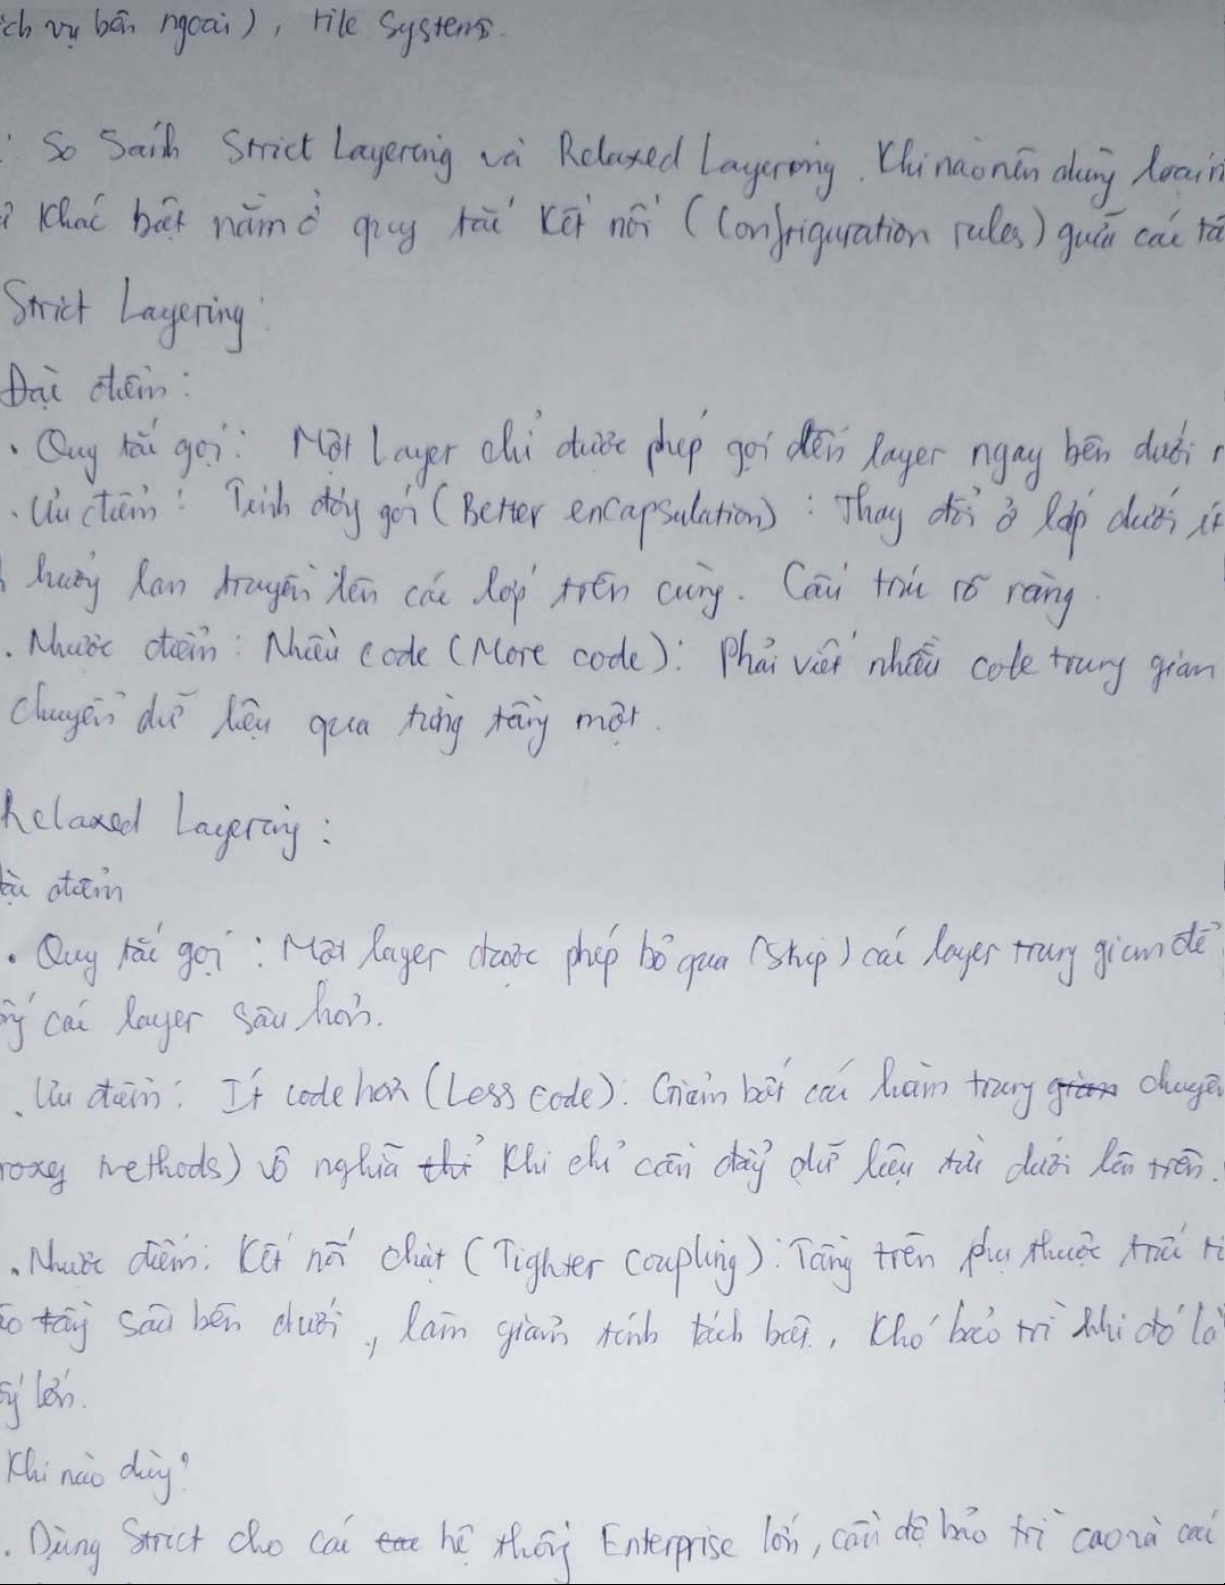 ịch vụ bên ngoài), File Systems.
: So sánh Strict Layering và Relaxed Layering. Khi nào nên dùng loại n
ự khác biệt nằm ở quy tắc kết nối (Configuration rules) giữa các tầ
Strict Layering:
Đặc điểm:
. Quy tắc gọi: Một Layer chỉ được phép gọi đến layer ngay bên dưới n
. Ưu điểm: Tính đóng gói (Better encapsulation): Thay đổi ở lớp dưới ít
h hưởng lan truyền lên các lớp trên cùng. Cấu trúc rõ ràng.
. Nhược điểm: Nhiều code (More code): Phải viết nhiều code trung gian
chuyển dữ liệu qua từng tầng một.
Relaxed Layering:
Đặc điểm
. Quy tắc gọi: Một layer được phép bỏ qua (Skip) các layer trung gian để
các layer sâu hơn.
. Ưu điểm: Ít code hơn (Less code): Giảm bớt các hàm trung gian chuyển
roxy methods) vô nghĩa khi chỉ cần đẩy dữ liệu từ dưới lên trên.
. Nhược điểm: Kết nối chặt (Tighter coupling): Tầng trên phụ thuộc trực ti
ào tầng sâu bên dưới, làm giảm tính tách biệt, khó bảo trì khi đó là
lớn.
Khi nào dùng?
. Dùng Strict cho các hệ thống Enterprise lớn, cần độ bảo trì cao và các